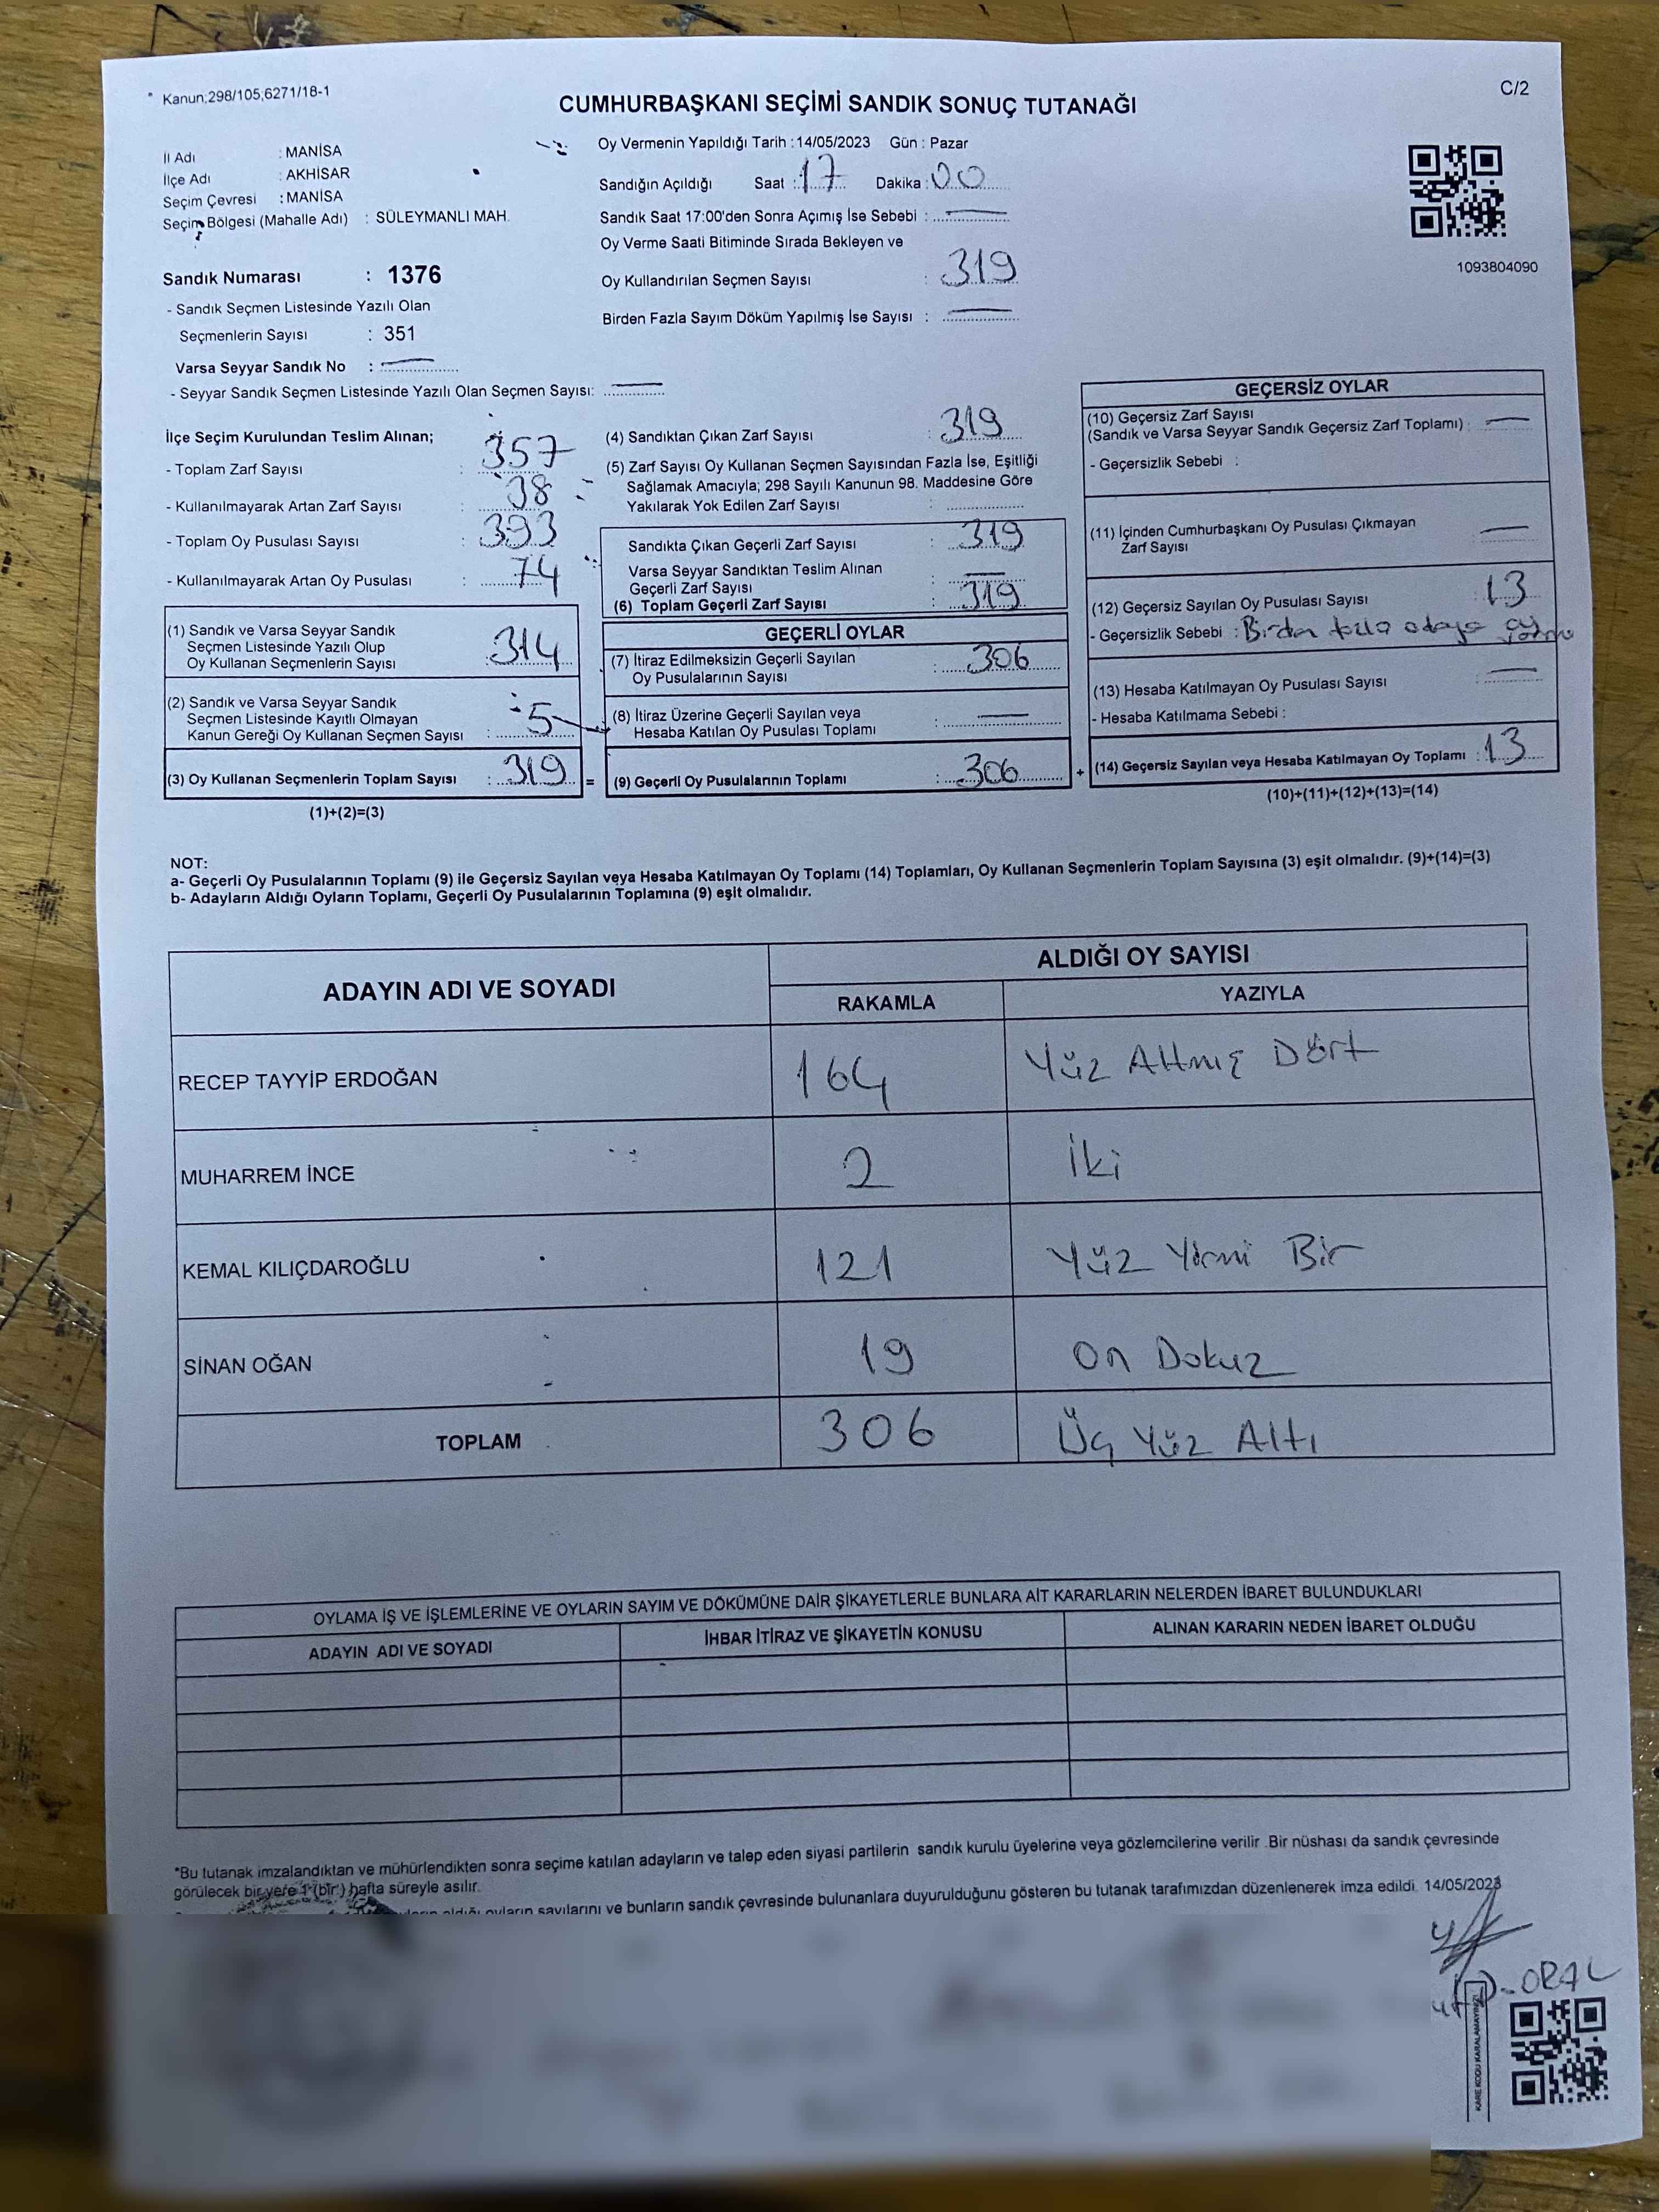 Kanun:298/105,6271/18-1
C/2
CUMHURBAŞKANI SEÇİMİ SANDIK SONUÇ TUTANAĞI
İl Adı : MANİSA
İlçe Adı : AKHİSAR
Seçim Çevresi : MANİSA
Seçim Bölgesi (Mahalle Adı) : SÜLEYMANLI MAH.
Sandık Numarası : 1376
- Sandık Seçmen Listesinde Yazılı Olan
Seçmenlerin Sayısı : 351
Varsa Seyyar Sandık No :
- Seyyar Sandık Seçmen Listesinde Yazılı Olan Seçmen Sayısı:
Oy Vermenin Yapıldığı Tarih : 14/05/2023 Gün : Pazar
Sandığın Açıldığı Saat : 17 Dakika : 00
Sandık Saat 17:00'den Sonra Açımış İse Sebebi :
Oy Verme Saati Bitiminde Sırada Bekleyen ve
Oy Kullandırılan Seçmen Sayısı : 319
Birden Fazla Sayım Döküm Yapılmış İse Sayısı :
1093804090
İlçe Seçim Kurulundan Teslim Alınan;
- Toplam Zarf Sayısı : 357
- Kullanılmayarak Artan Zarf Sayısı : 38
- Toplam Oy Pusulası Sayısı : 393
- Kullanılmayarak Artan Oy Pusulası : 74
(1) Sandık ve Varsa Seyyar Sandık
Seçmen Listesinde Yazılı Olup
Oy Kullanan Seçmenlerin Sayısı : 314
(2) Sandık ve Varsa Seyyar Sandık
Seçmen Listesinde Kayıtlı Olmayan
Kanun Gereği Oy Kullanan Seçmen Sayısı : 5
(3) Oy Kullanan Seçmenlerin Toplam Sayısı : 319 =
(1)+(2)=(3)
(4) Sandıktan Çıkan Zarf Sayısı : 319
(5) Zarf Sayısı Oy Kullanan Seçmen Sayısından Fazla İse, Eşitliği
Sağlamak Amacıyla; 298 Sayılı Kanunun 98. Maddesine Göre
Yakılarak Yok Edilen Zarf Sayısı :
Sandıkta Çıkan Geçerli Zarf Sayısı : 319
Varsa Seyyar Sandıktan Teslim Alınan
Geçerli Zarf Sayısı :
(6) Toplam Geçerli Zarf Sayısı : 319
GEÇERLİ OYLAR
(7) İtiraz Edilmeksizin Geçerli Sayılan
Oy Pusulalarının Sayısı : 306
(8) İtiraz Üzerine Geçerli Sayılan veya
Hesaba Katılan Oy Pusulası Toplamı :
(9) Geçerli Oy Pusulalarının Toplamı : 306 +
GEÇERSİZ OYLAR
(10) Geçersiz Zarf Sayısı
(Sandık ve Varsa Seyyar Sandık Geçersiz Zarf Toplamı) :
- Geçersizlik Sebebi :
(11) İçinden Cumhurbaşkanı Oy Pusulası Çıkmayan
Zarf Sayısı
(12) Geçersiz Sayılan Oy Pusulası Sayısı : 13
- Geçersizlik Sebebi : Birden fazla adaya oy
(13) Hesaba Katılmayan Oy Pusulası Sayısı :
- Hesaba Katılmama Sebebi :
(14) Geçersiz Sayılan veya Hesaba Katılmayan Oy Toplamı : 13
(10)+(11)+(12)+(13)=(14)
NOT:
a- Geçerli Oy Pusulalarının Toplamı (9) ile Geçersiz Sayılan veya Hesaba Katılmayan Oy Toplamı (14) Toplamları, Oy Kullanan Seçmenlerin Toplam Sayısına (3) eşit olmalıdır. (9)+(14)=(3)
b- Adayların Aldığı Oyların Toplamı, Geçerli Oy Pusulalarının Toplamına (9) eşit olmalıdır.
ADAYIN ADI VE SOYADI
ALDIĞI OY SAYISI
RAKAMLA YAZIYLA
RECEP TAYYİP ERDOĞAN 164 Yüz Altmış Dört
MUHARREM İNCE 2 İki
KEMAL KILIÇDAROĞLU 121 Yüz Yirmi Bir
SİNAN OĞAN 19 On Dokuz
TOPLAM 306 Üç Yüz Altı
OYLAMA İŞ VE İŞLEMLERİNE VE OYLARIN SAYIM VE DÖKÜMÜNE DAİR ŞİKAYETLERLE BUNLARA AİT KARARLARIN NELERDEN İBARET BULUNDUKLARI
ADAYIN ADI VE SOYADI İHBAR İTİRAZ VE ŞİKAYETİN KONUSU ALINAN KARARIN NEDEN İBARET OLDUĞU
*Bu tutanak imzalandıktan ve mühürlendikten sonra seçime katılan adayların ve talep eden siyasi partilerin sandık kurulu üyelerine veya gözlemcilerine verilir .Bir nüshası da sandık çevresinde
görülecek bir yere 1 (bir ) hafta süreyle asılır.
oyların sayılarını ve bunların sandık çevresinde bulunanlara duyurulduğunu gösteren bu tutanak tarafımızdan düzenlenerek imza edildi. 14/05/2023
ORAL
KARE KODU KARALAMAYINIZ!